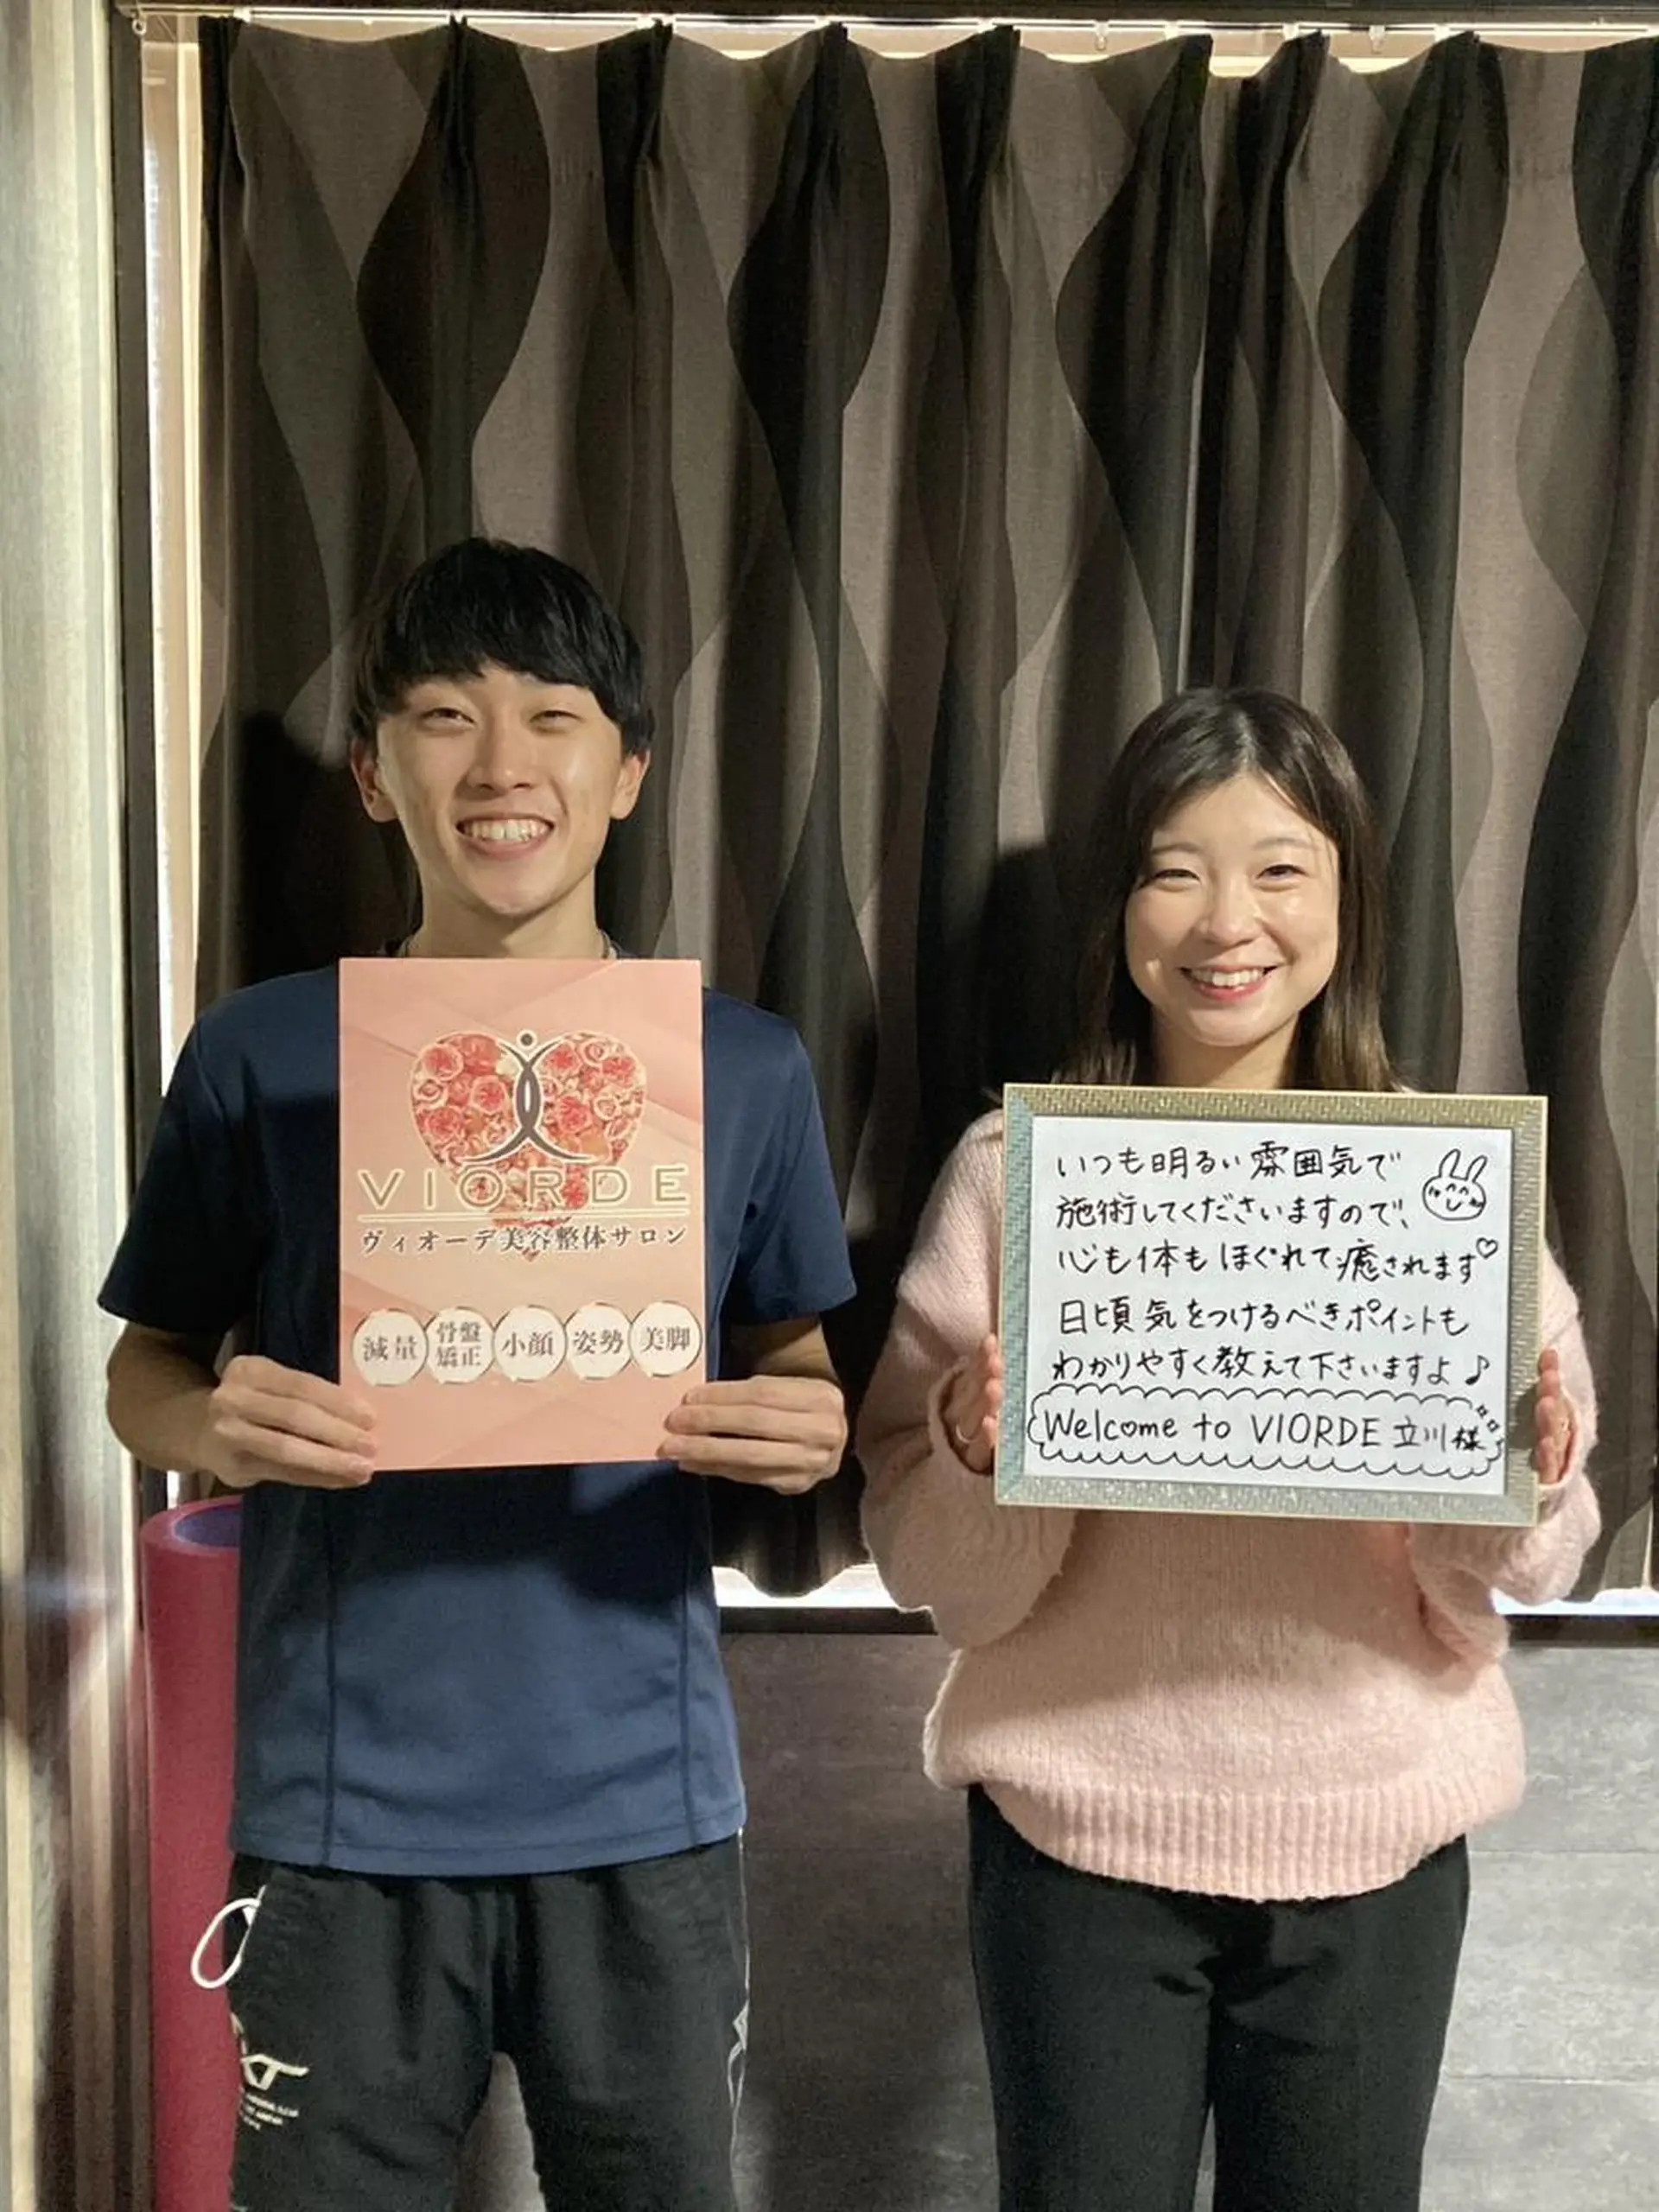 VIORDE
ヴィオーデ美容整体サロン
減量
骨盤
矯正
小顔
姿勢
美脚
いつも明るい雰囲気で
施術してくださいますので、
心も体もほぐれて癒されます♡
日頃気をつけるべきポイントも
わかりやすく教えて下さいますよ♪
Welcome to VIORDE 立川様